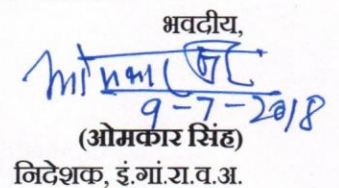 भवदीय,
9-7-2018
(ओमकार सिंह)
निदेशक, इं.गां.रा.व.अ.